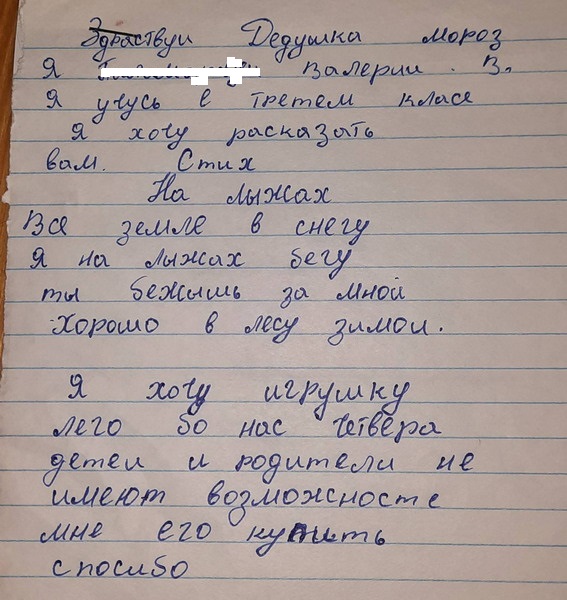 Здраствуи Дедушка мороз
Я Валерии. В.
Я учусь в третем класе
Я хочу расказать
вам. Стих
На лыжах
Вся земле в снегу
Я на лыжах бегу
ты бежышь за мной
Хорошо в лесу зимои.
Я хочу игрушку
лего бо нас четвера
детеи и родители не
имеют возможносте
мне его купить
спосибо